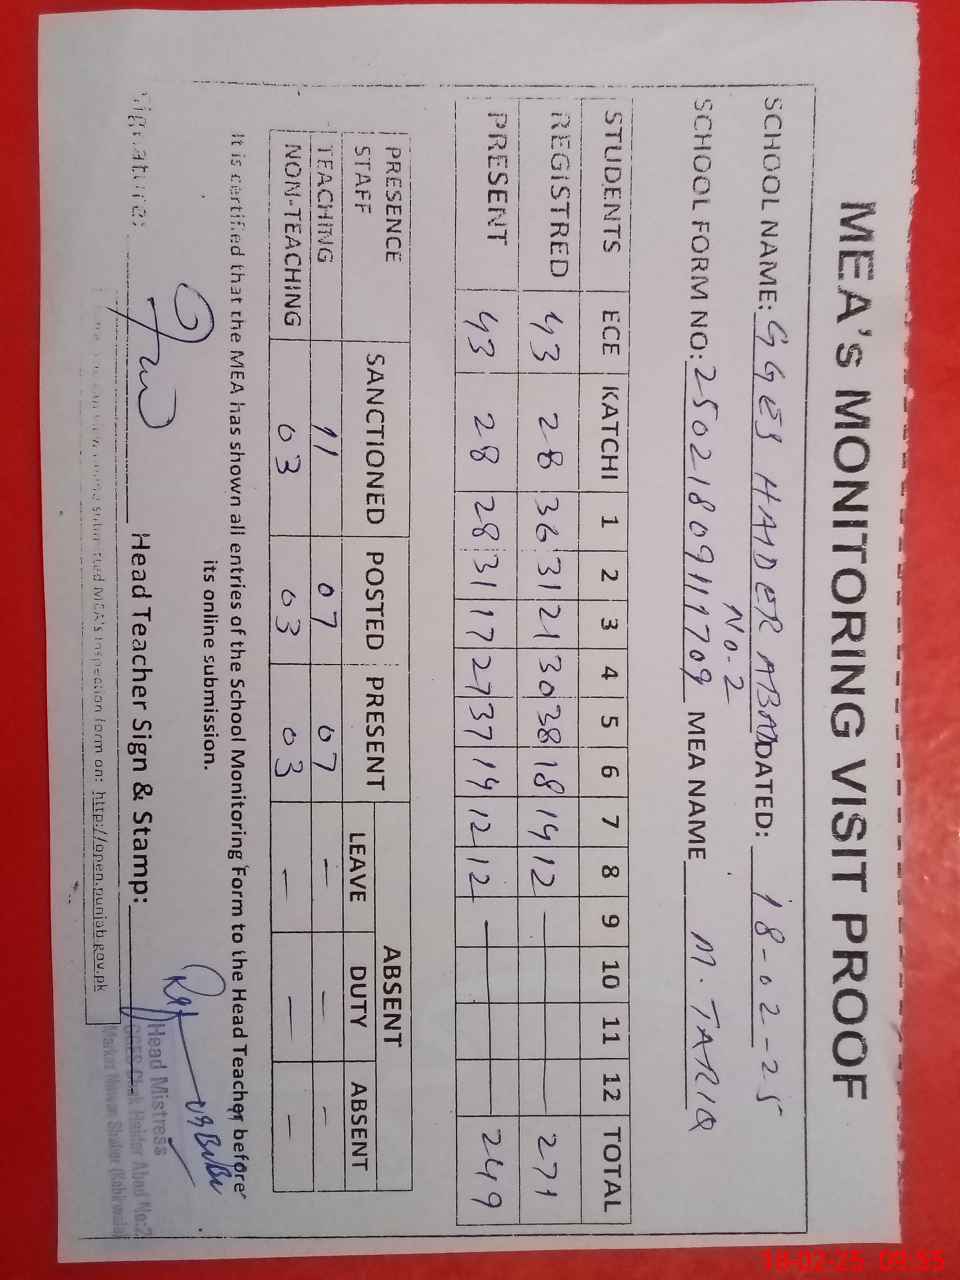 MEA's MONITORING VISIT PROOF
SCHOOL NAME: GGES HAIDER ABAD DATED: 18-02-25
No-2
SCHOOL FORM NO: 25021809111709 MEA NAME M. TARIQ
STUDENTS ECE KATCHI 1 2 3 4 5 6 7 8 9 10 11 12 TOTAL
REGISTRED 43 28 36 31 21 30 38 18 14 12 271
PRESENT 43 28 28 31 17 27 37 14 12 12 249
PRESENCE STAFF SANCTIONED POSTED PRESENT ABSENT
LEAVE DUTY ABSENT
TEACHING 11 07 07 - - -
NON-TEACHING 03 03 03 - - -
It is certified that the MEA has shown all entries of the School Monitoring Form to the Head Teacher before
its online submission.
Signature: Head Teacher Sign & Stamp:
Head Mistress
GGES Chak Haider Abad No:2
submitted MEA's inspection form on: http://open.punjab.gov.pk
18-02-25 09:55